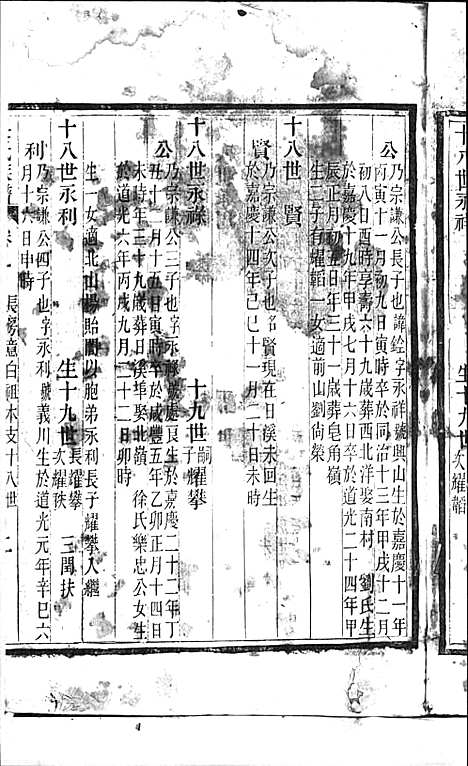 十八世永祥 生十九世 次耀韜
公乃宗謙公長子也諱銓字永祥號興山生於嘉慶十一年
丙寅十一月初九日寅時卒於同治十三年甲戌十二月
初八日酉時享壽六十九歲葬西北洋娶南村劉氏生
於嘉慶十九年甲戌七月十六日卒於道光二十四年甲
辰正月初五日年三十一歲葬皂角嶺
生二子有耀韜一女適前山劉尙榮
十八世 賢
賢乃宗謙公次子也名賢現在日溪未回生
於嘉慶十四年己巳十一月二十日未時
十八世永祿 十九世嗣子耀攀
公乃宗謙公三子也字永祿號處良生於嘉慶二十二年丁
丑十一月十五日寅時卒於咸豐五年乙卯正月十四日
未時年三十九歲葬日溪埠娶北嶺徐氏樂忠公女生
於道光六年丙戌九月二十二日卯時
生一女適北山楊貽閣以胞弟永利長子耀攀入繼
十八世永利 生十九世 長耀攀 次耀秩 三閏扶
利乃宗謙公四子也字永利號義川生於道光元年辛巳六
月十六日申時
長房意白祖木支十八世